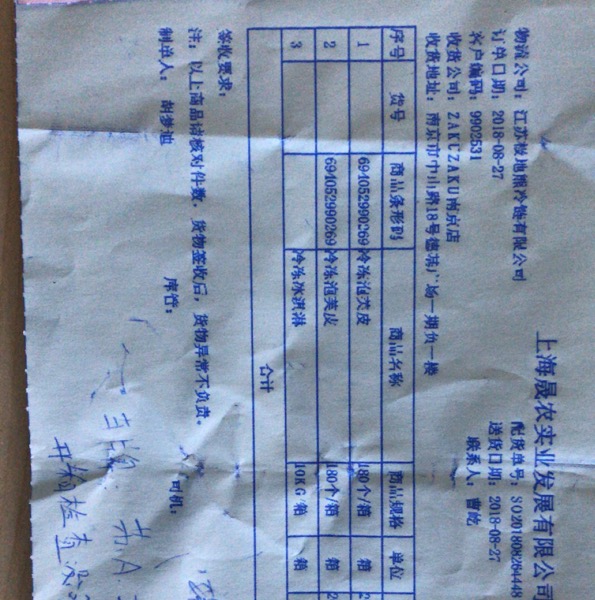 上海晟农实业发展有限公司
物流公司：江苏极地熊冷链有限公司 配货单号：SO201808264448
订单日期：2018-08-27 送货日期：2018-08-27
客户编码：9902531 联系人：曹屹
收货公司：ZAKUZAKU南京店
收货地址：南京市中山路18号德基广场一期负一楼
序号 货号 商品条形码 商品名称 商品规格 单位
1 694052990269 冷冻泡芙皮 180个/箱 箱 2
2 694052990269 冷冻泡芙皮 180个/箱 箱 2
3 冷冻冰淇淋 10KG/箱 箱
合计
签收要求：
注：以上商品请核对件数，货物签收后，货物异常不负责。
制单人：胡梦迪 库管： 司机：
苏A.
开箱检查